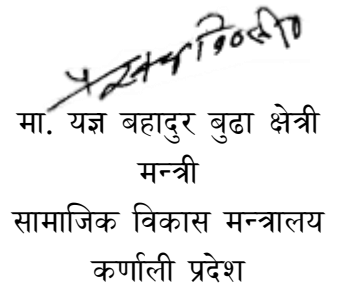 मा. यज्ञ बहादुर बुढा क्षेत्री
मन्त्री
सामाजिक विकास मन्त्रालय
कर्णाली प्रदेश